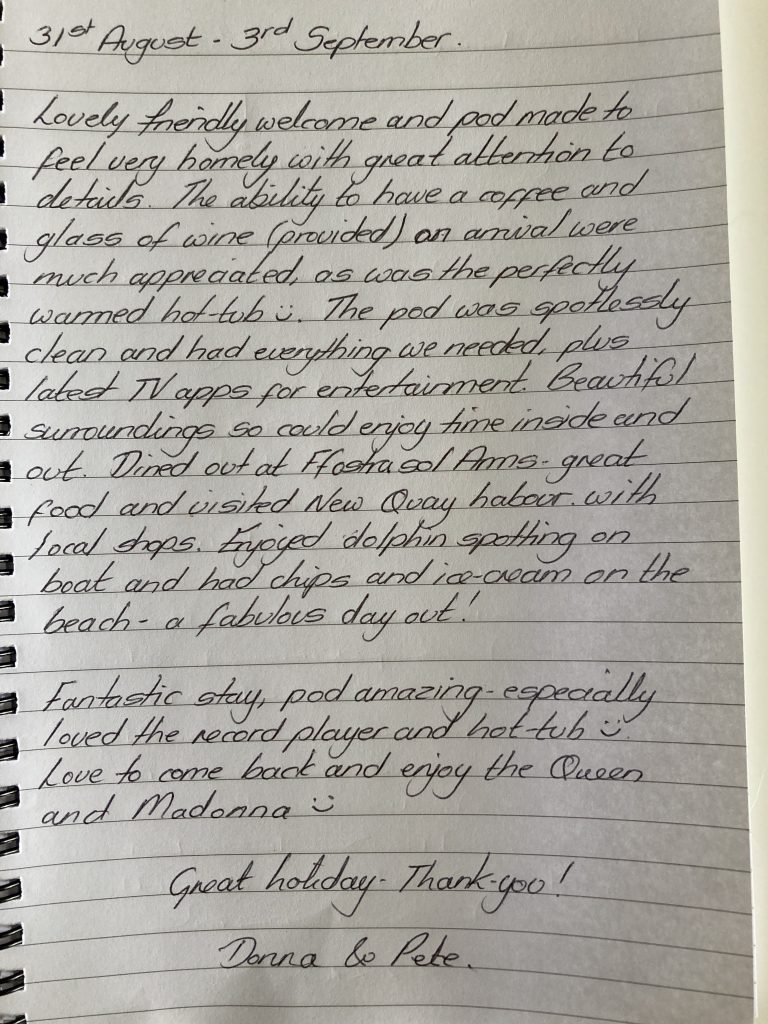 31st August - 3rd September.
Lovely friendly welcome and pod made to
feel very homely with great attention to
details. The ability to have a coffee and
glass of wine (provided) on arrival were
much appreciated, as was the perfectly
warmed hot-tub ☺. The pod was spotlessly
clean and had everything we needed, plus
latest TV apps for entertainment. Beautiful
surroundings so could enjoy time inside and
out. Dined out at Ffostrasol Arms - great
food and visited New Quay habour. with
local shops. Enjoyed dolphin spotting on
boat and had chips and ice-cream on the
beach - a fabulous day out!
Fantastic stay, pod amazing - especially
loved the record player and hot-tub ☺.
Love to come back and enjoy the Queen
and Madonna ☺
Great holiday - Thank-you!
Donna & Pete.